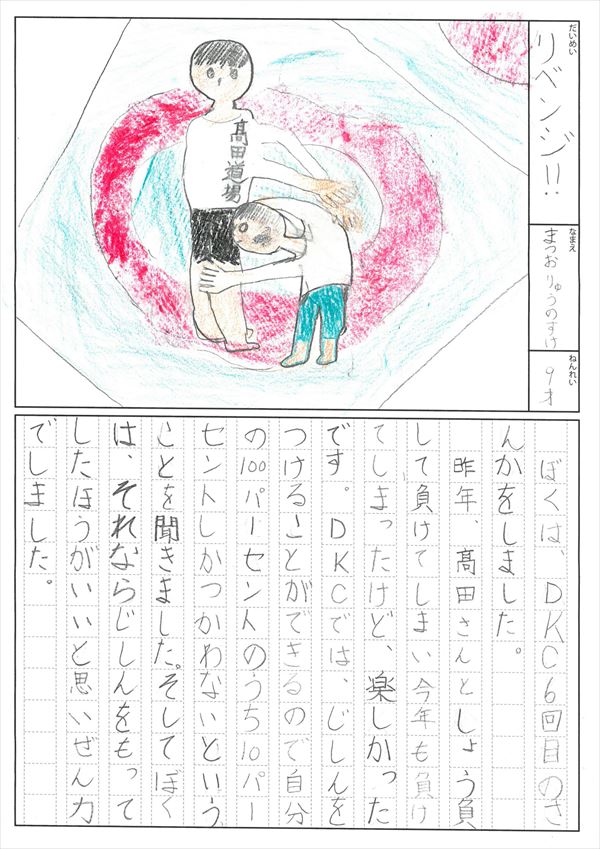 だいめい
リベンジ!!
なまえ
まつおりゅうのすけ
ねんれい
9才
髙田道場
ぼくは、DKC6回目のさ
んかをしました。
昨年、髙田さんとしょう負
して負けてしまい今年も負け
てしまったけど、楽しかった
です。DKCでは、じしんを
つけることができるので自分
の100パーセントのうち10パー
セントしかつかわないという
ことを聞きました。そしてぼく
は、それならじしんをもって
したほうがいいと思いぜん力
でしました。